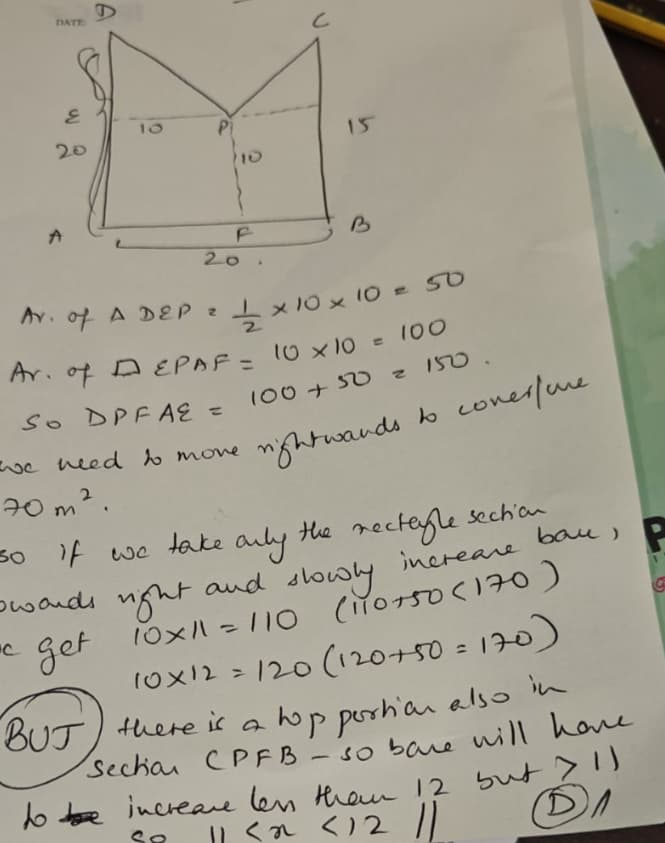 DATE
D
C
E
10
P
15
20
10
A
F
B
20.
Ar. of Δ DEP = 1/2 × 10 × 10 = 50
Ar. of □ EPAF = 10 × 10 = 100
So DPFAE = 100 + 50 = 150.
we need to move rightwards to cover/
70 m².
so if we take only the rectangle section
owards right and slowly increase base,
get 10×11 = 110 (110+50<170)
10×12 = 120 (120+50 = 170)
BUT there is a top portion also in
section CPFB – so base will have
to be increase less than 12 but > 11
so 11 < x < 12 // D
P